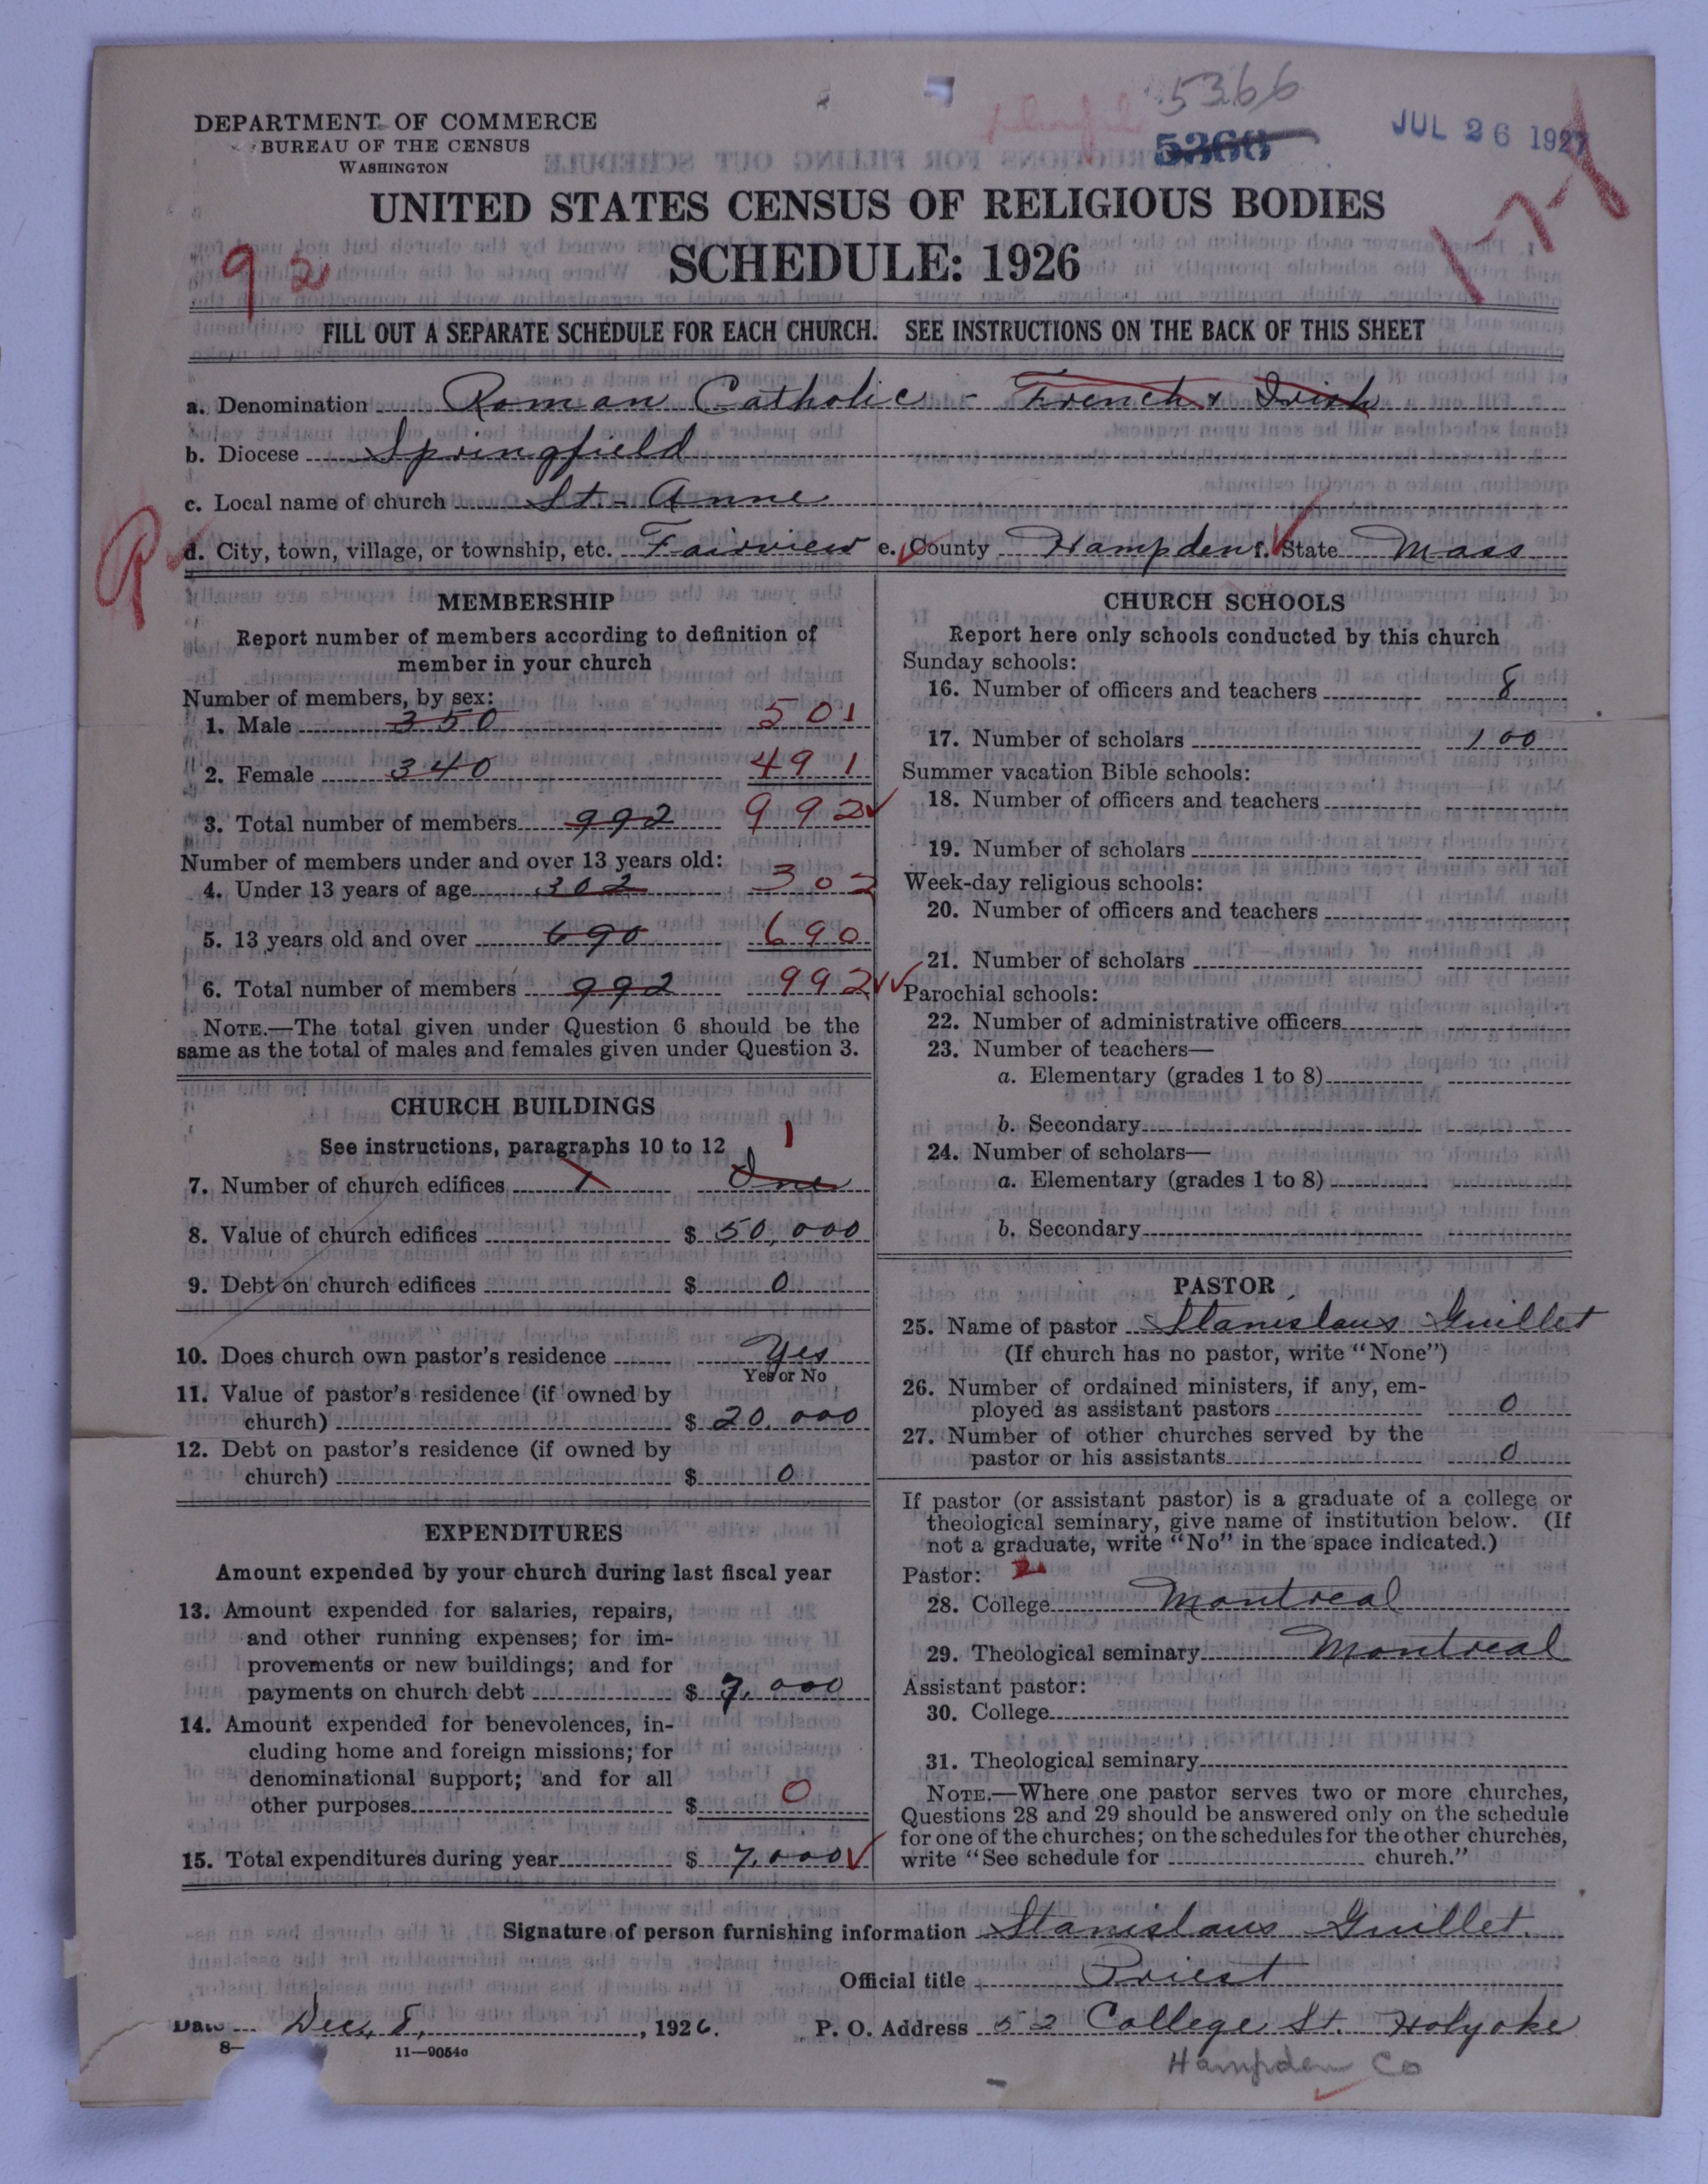 5366
5366
JUL 26 1927
DEPARTMENT OF COMMERCE
BUREAU OF THE CENSUS
WASHINGTON
UNITED STATES CENSUS OF RELIGIOUS BODIES
SCHEDULE: 1926
92
FILL OUT A SEPARATE SCHEDULE FOR EACH CHURCH. SEE INSTRUCTIONS ON THE BACK OF THIS SHEET
a. Denomination Roman Catholic - French & Irish
b. Diocese Springfield
c. Local name of church St. Anne
d. City, town, village, or township, etc. Fairview e. County Hampden f. State Mass
MEMBERSHIP
Report number of members according to definition of
member in your church
Number of members, by sex:
1. Male 350 501
2. Female 340 491
3. Total number of members 992 992
Number of members under and over 13 years old:
4. Under 13 years of age 302 302
5. 13 years old and over 690 690
6. Total number of members 992 992
NOTE.—The total given under Question 6 should be the
same as the total of males and females given under Question 3.
CHURCH BUILDINGS
See instructions, paragraphs 10 to 12 1
7. Number of church edifices 1 One
8. Value of church edifices $ 50,000
9. Debt on church edifices $ 0
10. Does church own pastor's residence Yes
Yes or No
11. Value of pastor's residence (if owned by
church) $ 20,000
12. Debt on pastor's residence (if owned by
church) $ 0
EXPENDITURES
Amount expended by your church during last fiscal year
13. Amount expended for salaries, repairs,
and other running expenses; for im-
provements or new buildings; and for
payments on church debt $ 7,000
14. Amount expended for benevolences, in-
cluding home and foreign missions; for
denominational support; and for all
other purposes $ 0
15. Total expenditures during year $ 7,000
CHURCH SCHOOLS
Report here only schools conducted by this church
Sunday schools:
16. Number of officers and teachers 8
17. Number of scholars 100
Summer vacation Bible schools:
18. Number of officers and teachers
19. Number of scholars
Week-day religious schools:
20. Number of officers and teachers
21. Number of scholars
Parochial schools:
22. Number of administrative officers
23. Number of teachers—
a. Elementary (grades 1 to 8)
b. Secondary
24. Number of scholars—
a. Elementary (grades 1 to 8)
b. Secondary
PASTOR
25. Name of pastor Stanislaus Guillet
(If church has no pastor, write "None")
26. Number of ordained ministers, if any, em-
ployed as assistant pastors 0
27. Number of other churches served by the
pastor or his assistants 0
If pastor (or assistant pastor) is a graduate of a college or
theological seminary, give name of institution below. (If
not a graduate, write "No" in the space indicated.)
Pastor:
28. College Montreal
29. Theological seminary Montreal
Assistant pastor:
30. College
31. Theological seminary
NOTE.—Where one pastor serves two or more churches,
Questions 28 and 29 should be answered only on the schedule
for one of the churches; on the schedules for the other churches,
write "See schedule for church."
Signature of person furnishing information Stanislaus Guillet.
Official title Priest
Date Dec. 8, 1926. P. O. Address 52 College St. Holyoke
8— 11—9054c
Hampden Co